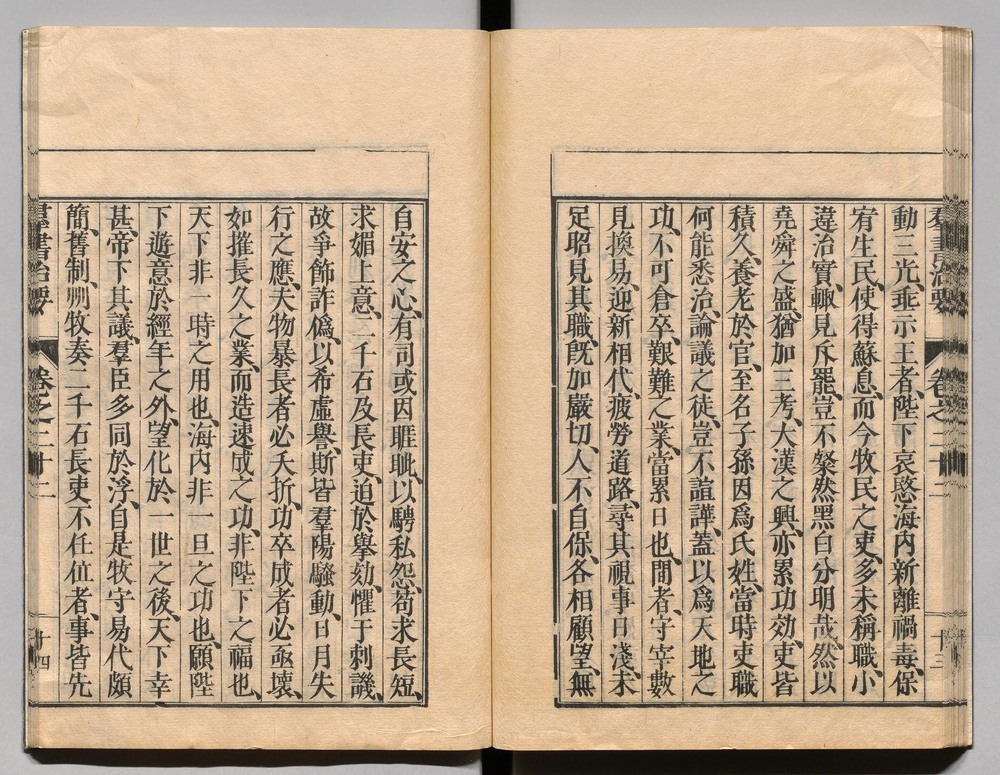 羣書治要 卷之二十二 十三
動三光、垂示王者、陛下哀愍海内新離禍毒、保
宥生民、使得蘇息、而今牧民之吏、多未稱職、小
違治實、輙見斥罷、豈不粲然黑白分明哉、然以
堯舜之盛、猶加三考、大漢之興、亦累功效、吏皆
積久、養老於官、至名子孫因爲氏姓、當時吏職
何能悉治、論議之徒、豈不諠譁、蓋以爲天地之
功、不可倉卒、艱難之業、當累日也、間者、守宰數
見換易、迎新相代、疲勞道路、尋其視事日淺、未
足昭見其職、既加嚴切、人不自保、各相顧望、無
自安之心、有司或因睚眦、以騁私怨、苟求長短、
求媚上意、二千石及長吏、迫於舉劾、懼于刺譏、
故爭飾詐僞、以希虛譽、斯皆羣陽騷動、日月失
行之應、夫物暴長者必夭折、功卒成者必亟壞、
如摧長久之業、而造速成之功、非陛下之福也、
天下非一時之用也、海内非一旦之功也、願陛
下遊意於經年之外、望化於一世之後、天下幸
甚、帝下其議、羣臣多同於浮、自是牧守易代頗
簡、舊制、州牧奏二千石長吏不任位者、事皆先
羣書治要 卷之二十二 十四